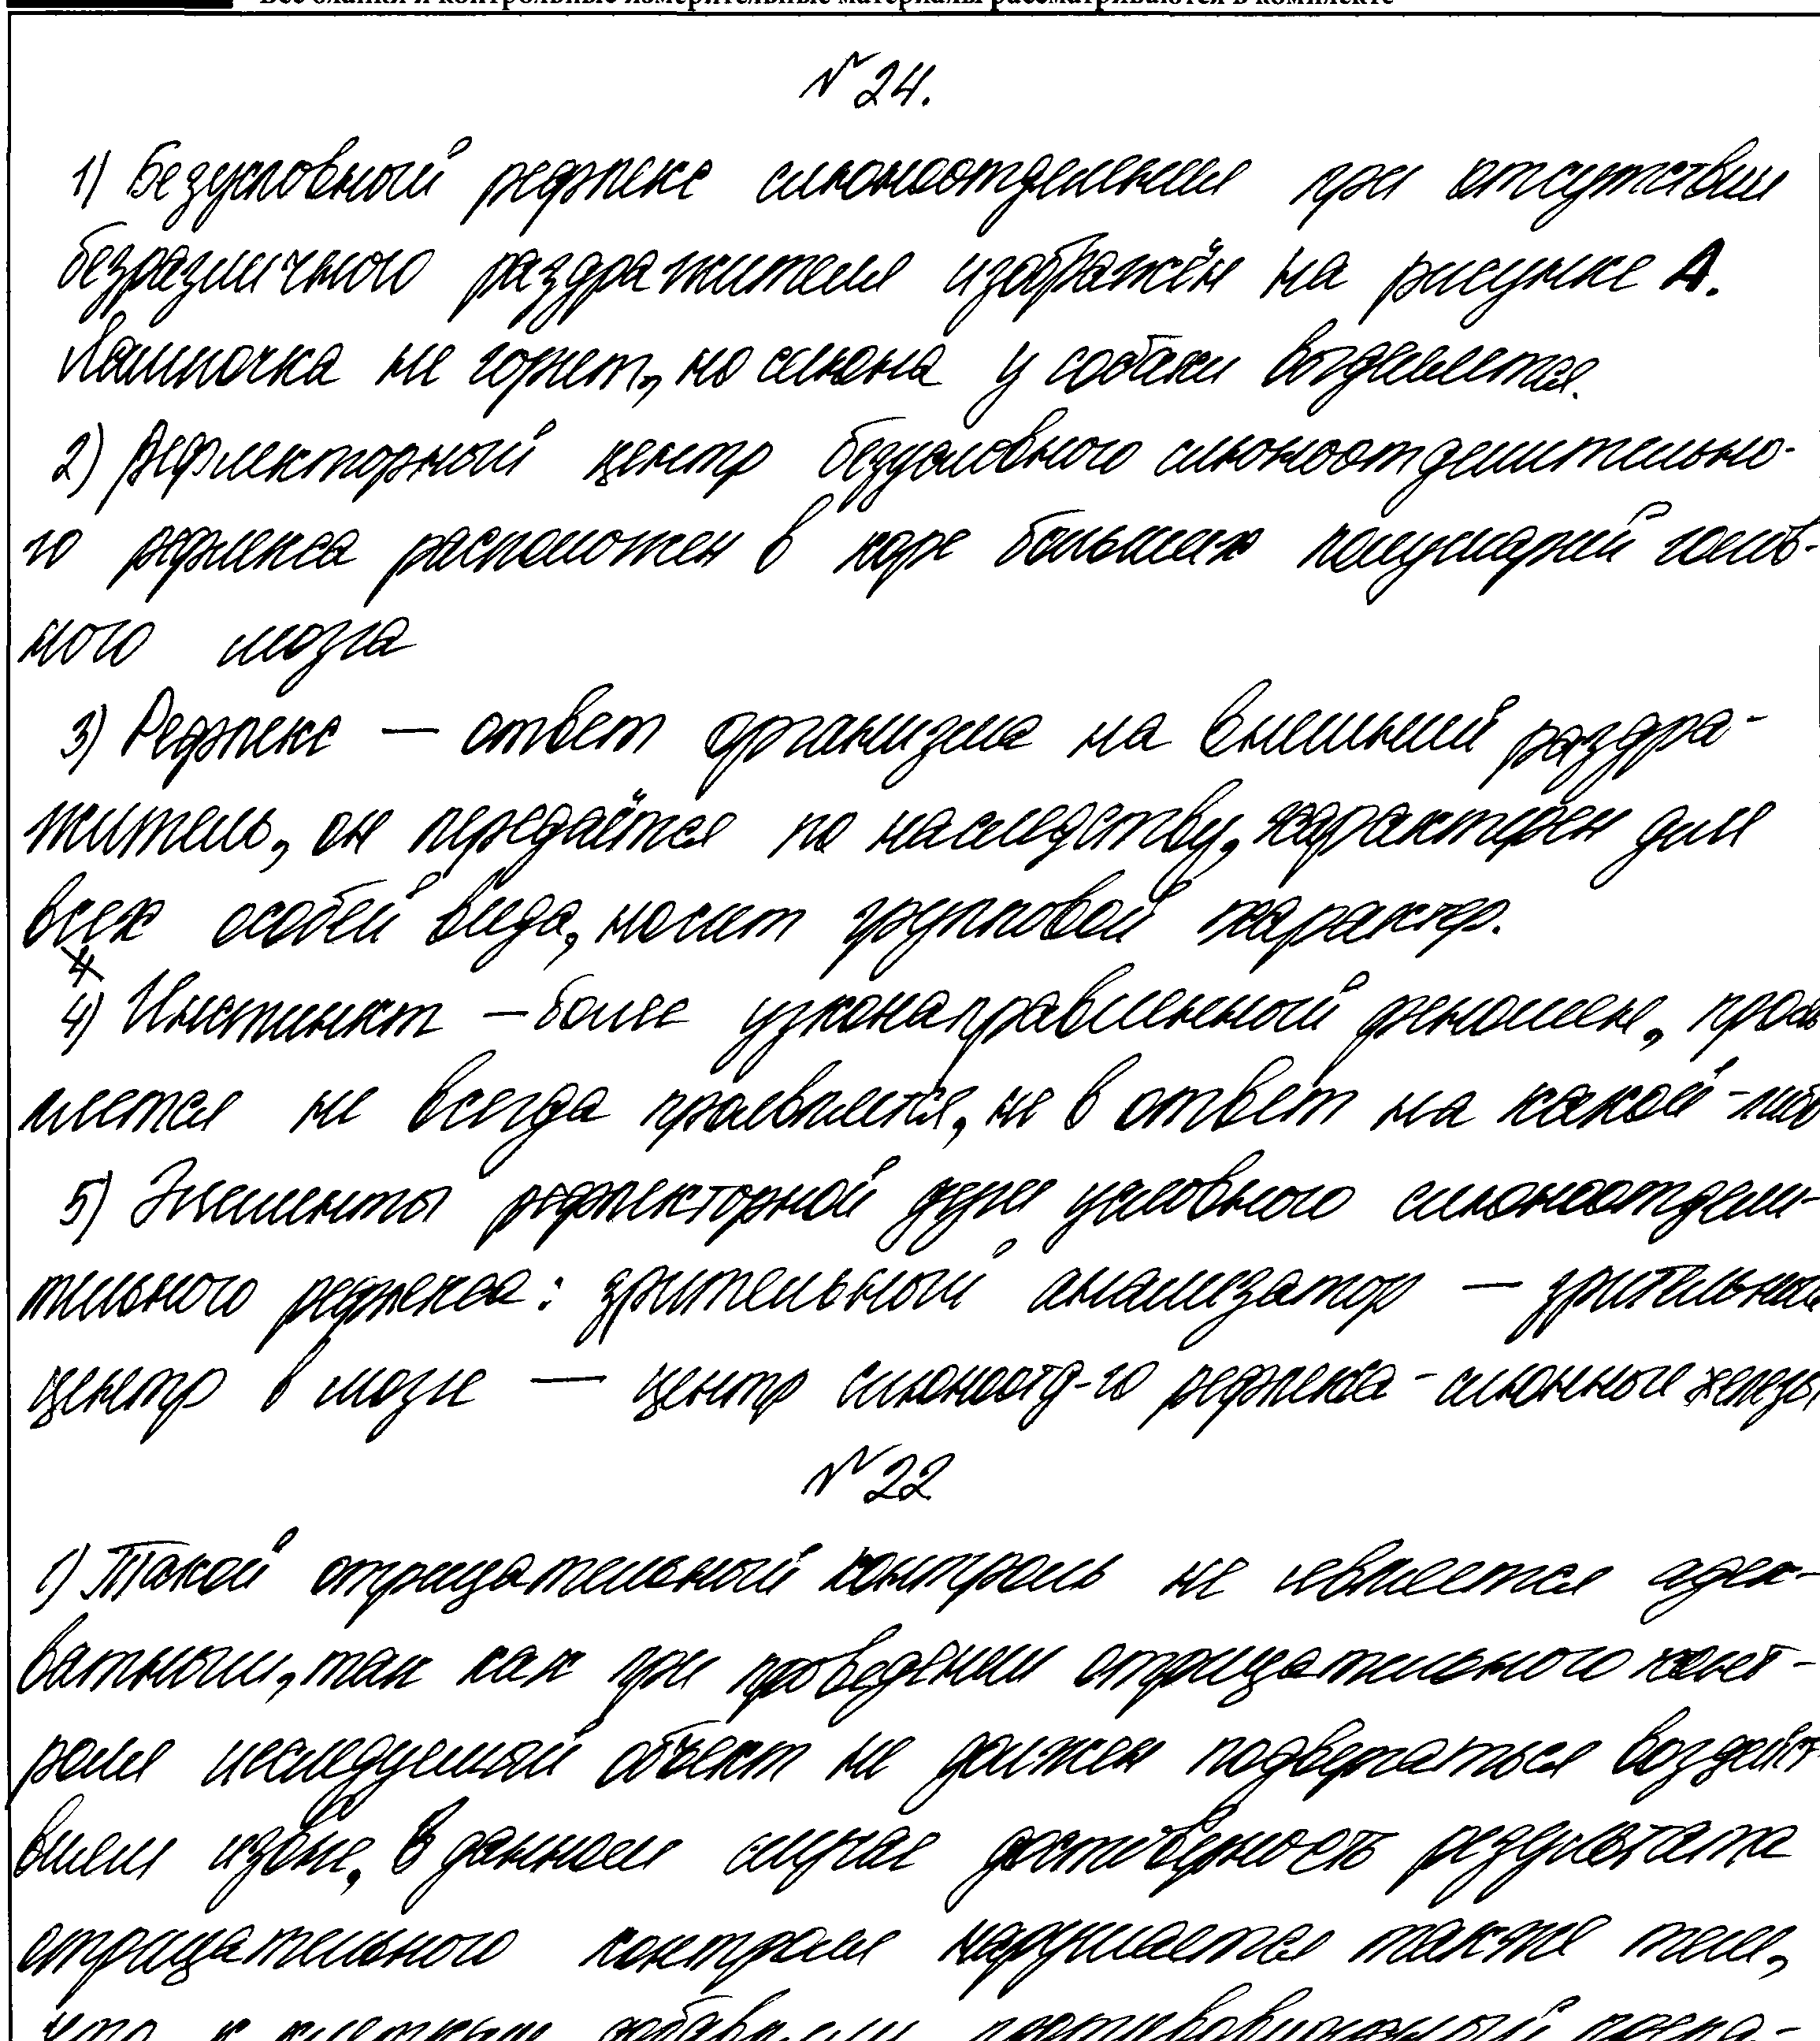 Все бланки и контрольные измерительные материалы рассматриваются в комплекте
№ 24.
1) Безусловный рефлекс слюноотделения при отсутствии
безразличного раздражителя изображён на рисунке А.
Лампочка не горит, но слюна у собаки выделяется.
2) Рефлекторный центр безусловного слюноотделительно-
го рефлекса расположен в коре больших полушарий голов-
ного мозга
3) Рефлекс — ответ организма на внешний раздра-
житель, он передаётся по наследству, характерен для
всех особей вида, носит групповой характер.
4) Инстинкт – более узконаправленный феномен, прояв
ляется не всегда проявляется, не в ответ на какой-либо
5) Элементы рефлекторной дуги условного слюноотдели-
тельного рефлекса: зрительный анализатор — зрительный
центр в мозге — центр слюноотд-го рефлекса - слюнные железы
№ 22
1) Такой отрицательный контроль не является адек-
ватным, так как при проведении отрицательного конт-
роля исследуемый объект не должен подвергаться воздейст
виям извне. В данном случае достоверность результата
отрицательного контроля нарушается также тем,
что к клеткам добавили